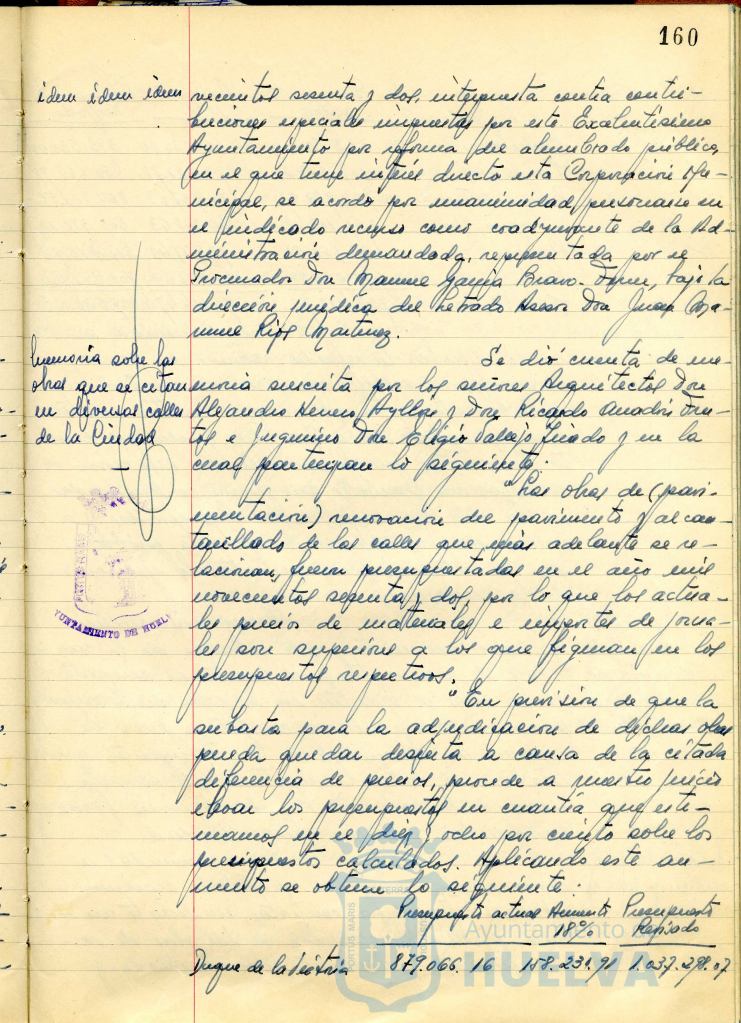 160
idem idem idem
vecientos sesenta y dos, interpuesta contra contri-
buciones especiales impuestas por este Excelentísimo
Ayuntamiento por reforma del alumbrado público,
en el que tiene interés directo esta Corporación Mu-
nicipal, se acordó por unanimidad personarse en
el indicado recurso como coadyuvante de la Ad-
ministración demandada, representada por el
Procurador Don Manuel García Bravo-Ferrer, bajo la
dirección jurídica del Letrado Asesor Don Juan Ma-
nuel Rips Martinez.
Memoria sobre las
obras que se citan
en diversas calles
de la Ciudad
Se dió cuenta de me-
moria suscrita por los señores Arquitectos Don
Alejandro Herrero Ayllón y Don Ricardo Anadón Fru-
tos e Ingeniero Don Eligio Vallejo Jurado y en la
cual participan lo siguiente:
"Las obras de (pavi-
mentación) renovación del pavimento y alcan-
tarillado de las calles que más adelante se re-
lacionan, fueron presupuestadas en el año mil
novecientos sesenta y dos, por lo que los actua-
les precios de materiales e importes de jorna-
les son superiores a los que figuran en los
presupuestos respectivos.
"En previsión de que la
subasta para la adjudicación de dichas obras
pueda quedar desierta a causa de la citada
diferencia de precios, procede a nuestro juicio
elevar los presupuestos en cuantía que esti-
mamos en el diez y ocho por ciento sobre los
presupuestos calculados. Aplicando este au-
mento se obtiene lo siguiente:
Presupuesto actual Aumento 18% Presupuesto Revisado
Duque de la Victoria 879.066.16 158.231.91 1.037.298.07
AYUNTAMIENTO DE HUELVA
PORTUS MARIS
Ayuntamiento
HUELVA